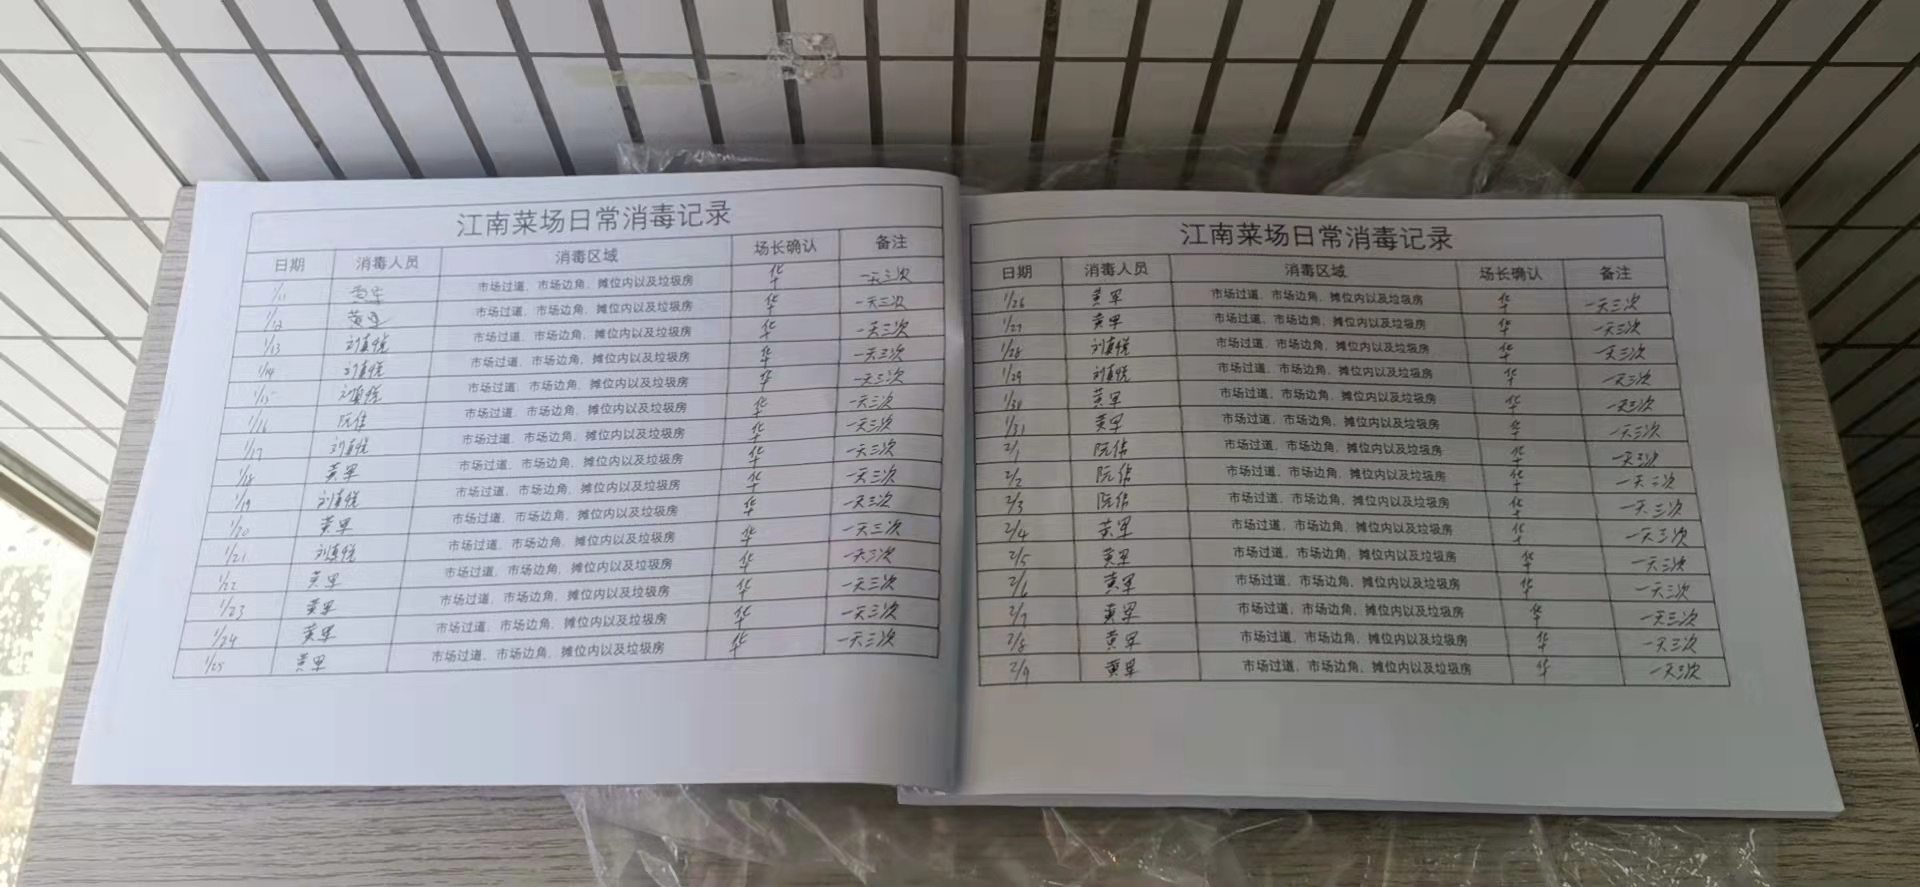 江南菜场日常消毒记录
日期 消毒人员 消毒区域 场长确认 备注
1/11 黄军 市场过道、市场边角、摊位内以及垃圾房 华 一天三次
1/12 黄军 市场过道、市场边角、摊位内以及垃圾房 华 一天三次
1/13 刘真悦 市场过道、市场边角、摊位内以及垃圾房 华 一天三次
1/14 刘真悦 市场过道、市场边角、摊位内以及垃圾房 华 一天三次
1/15 刘真悦 市场过道、市场边角、摊位内以及垃圾房 华 一天三次
1/16 阮伟 市场过道、市场边角、摊位内以及垃圾房 华 一天三次
1/17 刘真悦 市场过道、市场边角、摊位内以及垃圾房 华 一天三次
1/18 黄军 市场过道、市场边角、摊位内以及垃圾房 华 一天三次
1/19 刘真悦 市场过道、市场边角、摊位内以及垃圾房 华 一天三次
1/20 黄军 市场过道、市场边角、摊位内以及垃圾房 华 一天三次
1/21 刘真悦 市场过道、市场边角、摊位内以及垃圾房 华 一天三次
1/22 黄军 市场过道、市场边角、摊位内以及垃圾房 华 一天三次
1/23 黄军 市场过道、市场边角、摊位内以及垃圾房 华 一天三次
1/24 黄军 市场过道、市场边角、摊位内以及垃圾房 华 一天三次
1/25 黄军 市场过道、市场边角、摊位内以及垃圾房 华 一天三次
江南菜场日常消毒记录
日期 消毒人员 消毒区域 场长确认 备注
1/26 黄军 市场过道、市场边角、摊位内以及垃圾房 华 一天三次
1/27 黄军 市场过道、市场边角、摊位内以及垃圾房 华 一天三次
1/28 刘真悦 市场过道、市场边角、摊位内以及垃圾房 华 一天三次
1/29 刘真悦 市场过道、市场边角、摊位内以及垃圾房 华 一天三次
1/30 黄军 市场过道、市场边角、摊位内以及垃圾房 华 一天三次
1/31 黄军 市场过道、市场边角、摊位内以及垃圾房 华 一天三次
2/1 阮伟 市场过道、市场边角、摊位内以及垃圾房 华 一天三次
2/2 阮伟 市场过道、市场边角、摊位内以及垃圾房 华 一天三次
2/3 阮伟 市场过道、市场边角、摊位内以及垃圾房 华 一天三次
2/4 黄军 市场过道、市场边角、摊位内以及垃圾房 华 一天三次
2/5 黄军 市场过道、市场边角、摊位内以及垃圾房 华 一天三次
2/6 黄军 市场过道、市场边角、摊位内以及垃圾房 华 一天三次
2/7 黄军 市场过道、市场边角、摊位内以及垃圾房 华 一天三次
2/8 黄军 市场过道、市场边角、摊位内以及垃圾房 华 一天三次
2/9 黄军 市场过道、市场边角、摊位内以及垃圾房 华 一天三次